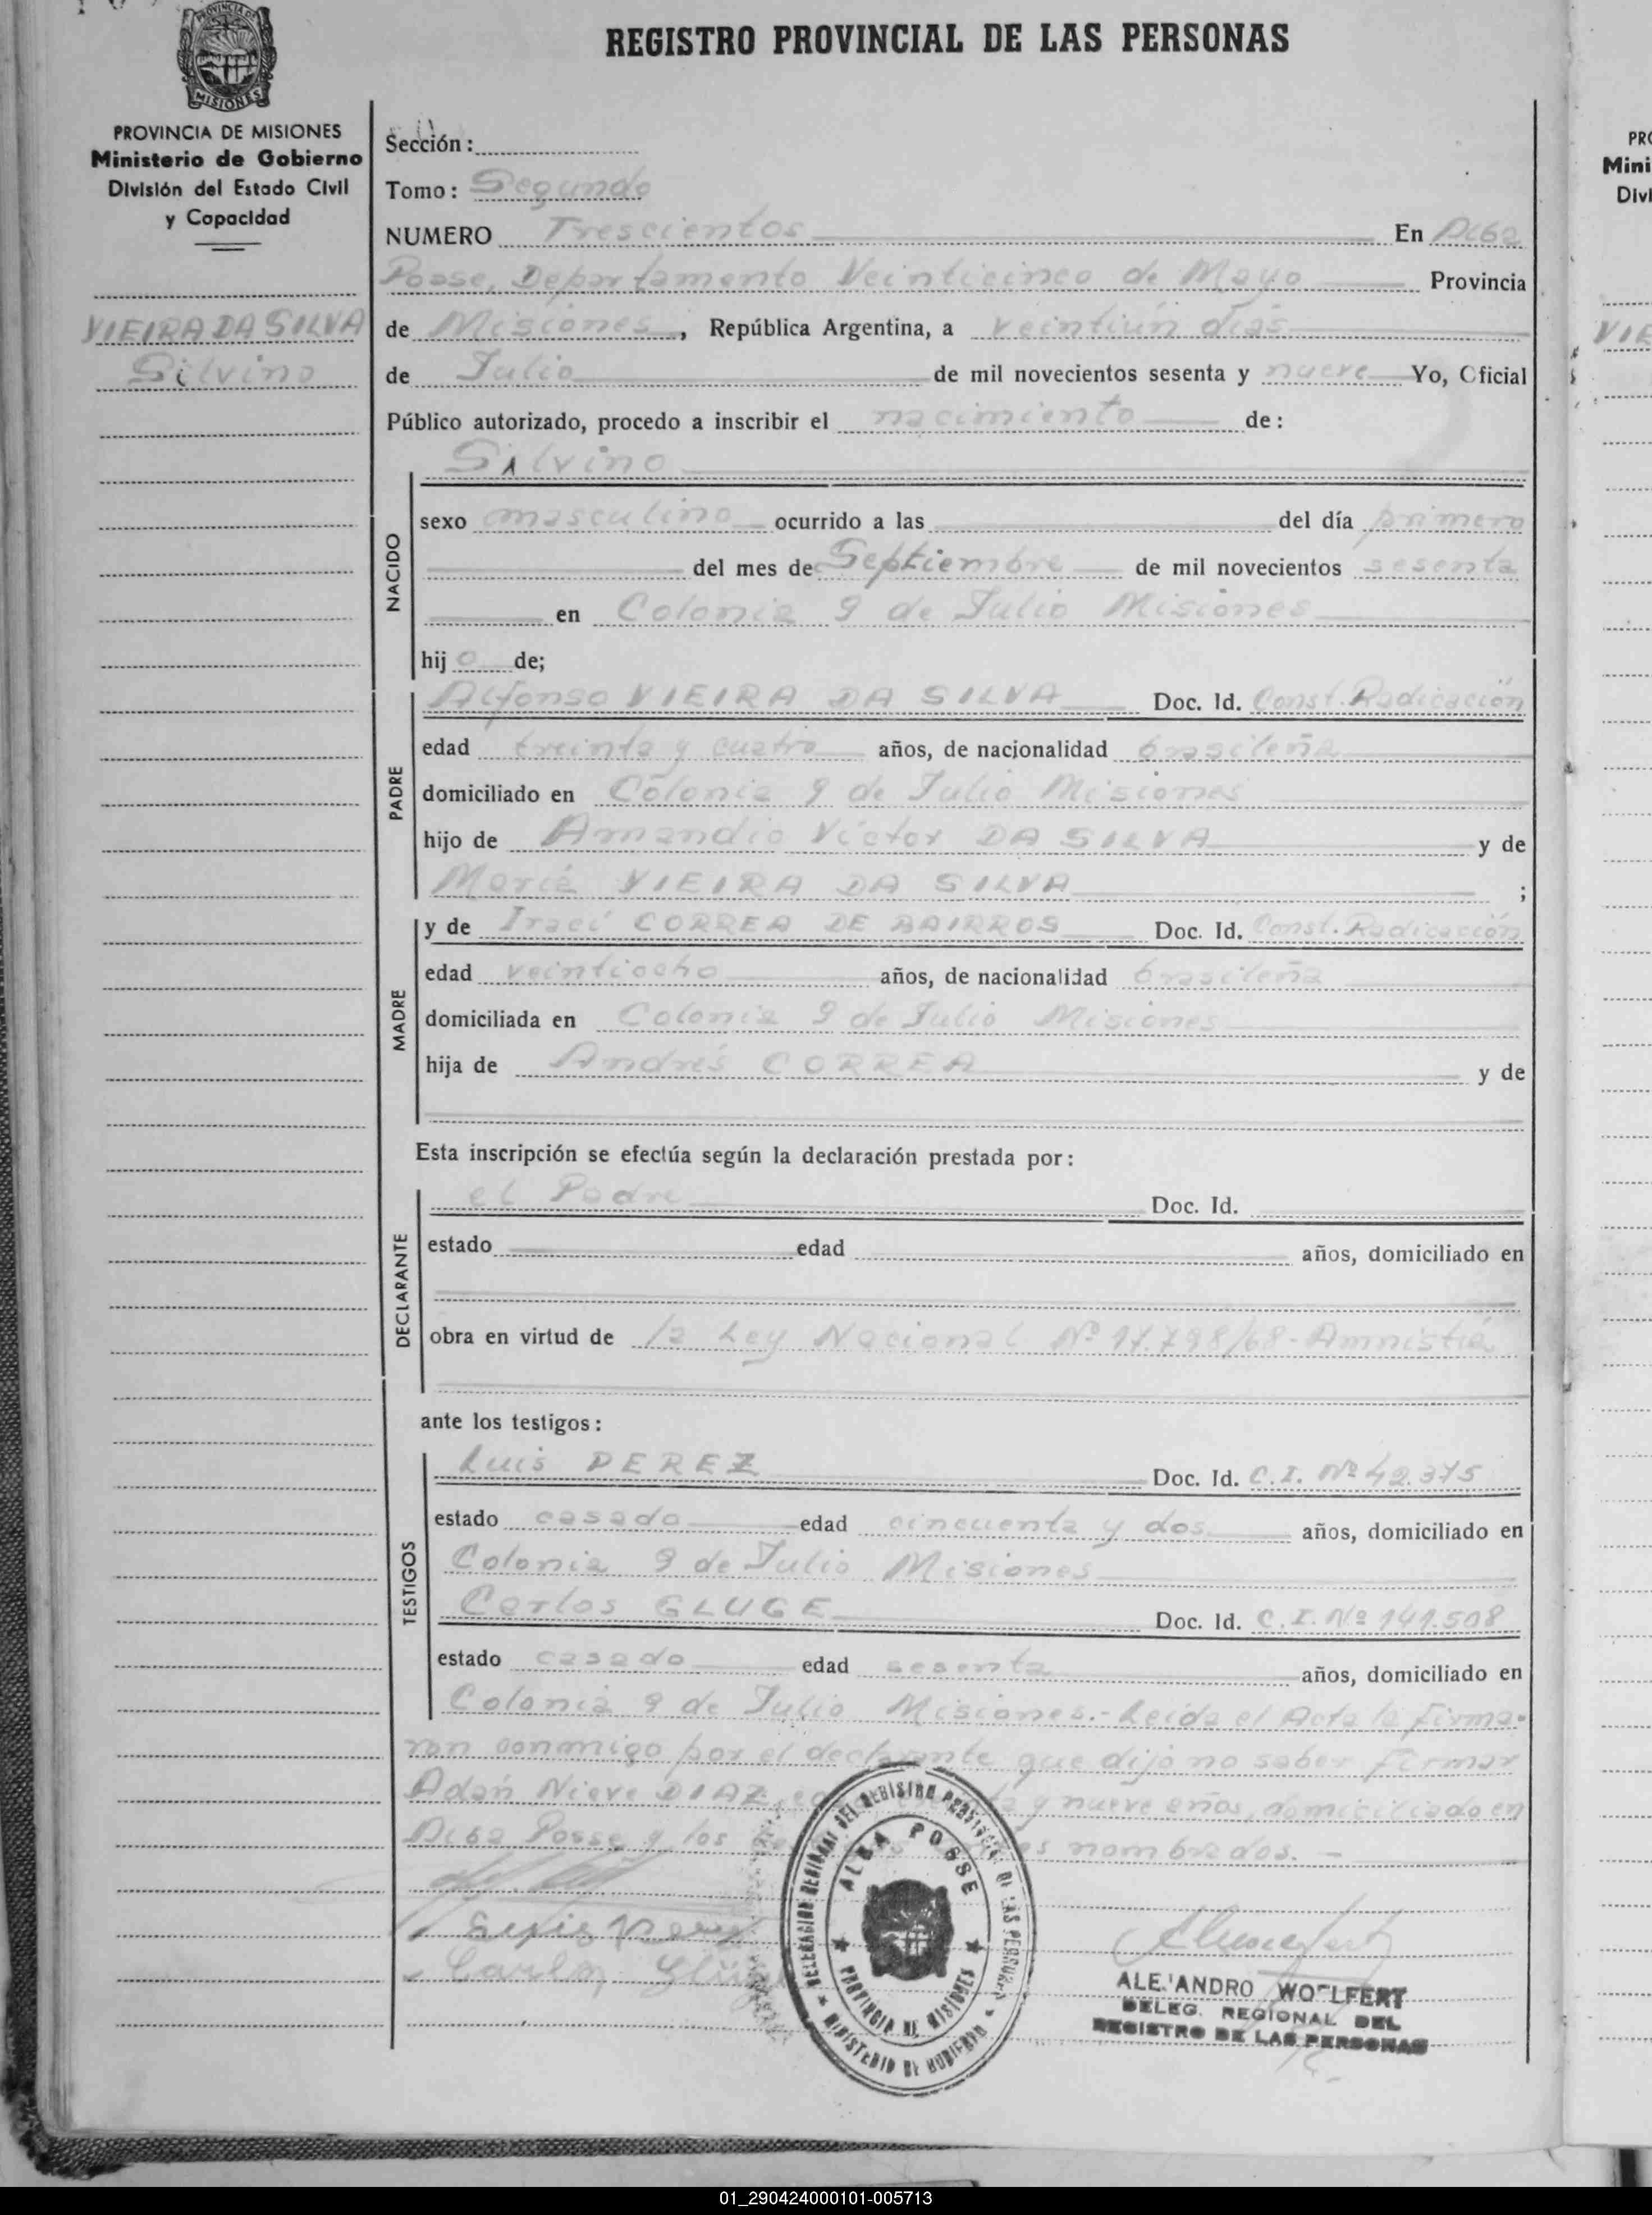 PROVINCIA DE
MISIONES
REGISTRO PROVINCIAL DE LAS PERSONAS
PROVINCIA DE MISIONES
Ministerio de Gobierno
División del Estado Civil
y Capacidad
VIEIRA DA SILVA
Silvino
Sección:
Tomo: Segundo
NUMERO Trescientos En Alba
Posse, Departamento Veinticinco de Mayo Provincia
de Misiones, República Argentina, a veintiún días
de Julio de mil novecientos sesenta y nueve Yo, Oficial
Público autorizado, procedo a inscribir el nacimiento de:
Silvino
NACIDO
sexo masculino ocurrido a las del día primero
del mes de Septiembre de mil novecientos sesenta
en Colonia 9 de Julio Misiones
hijo de;
PADRE
Alfonso VIEIRA DA SILVA Doc. Id. Const. Radicación
edad treinta y cuatro años, de nacionalidad brasileña
domiciliado en Colonia 9 de Julio Misiones
hijo de Amandio Victor DA SILVA y de
María VIEIRA DA SILVA ;
MADRE
y de Iraci CORREA DE BAIRROS Doc. Id. Const. Radicación
edad veintiocho años, de nacionalidad brasileña
domiciliada en Colonia 9 de Julio Misiones
hija de Andrés CORREA y de
Esta inscripción se efectúa según la declaración prestada por:
DECLARANTE
el Padre Doc. Id.
estado edad años, domiciliado en
obra en virtud de la Ley Nacional Nº 17.798/68 - Amnistía
ante los testigos:
TESTIGOS
Luis PEREZ Doc. Id. C.I. Nº 42.375
estado casado edad cincuenta y dos años, domiciliado en
Colonia 9 de Julio Misiones
Carlos GLUGE Doc. Id. C.I. Nº 141.508
estado casado edad sesenta años, domiciliado en
Colonia 9 de Julio Misiones.- Leída el Acta la firma-
ron conmigo por el declarante que dijo no saber firmar
Adán Nieve DIAZ, y nueve años, domiciliado en
Alba Posse y los nombrados. -
Luis Perez
Carlos Glüge
DELEGACION REGIONAL DEL REGISTRO PROVINCIAL DE LAS PERSONAS
MINISTERIO DE GOBIERNO
ALBA POSSE
PROVINCIA DE MISIONES
ALEJANDRO WOLFERT
DELEG. REGIONAL DEL
REGISTRO DE LAS PERSONAS
PRO
Mini
Divi
VIE
01_290424000101-005713